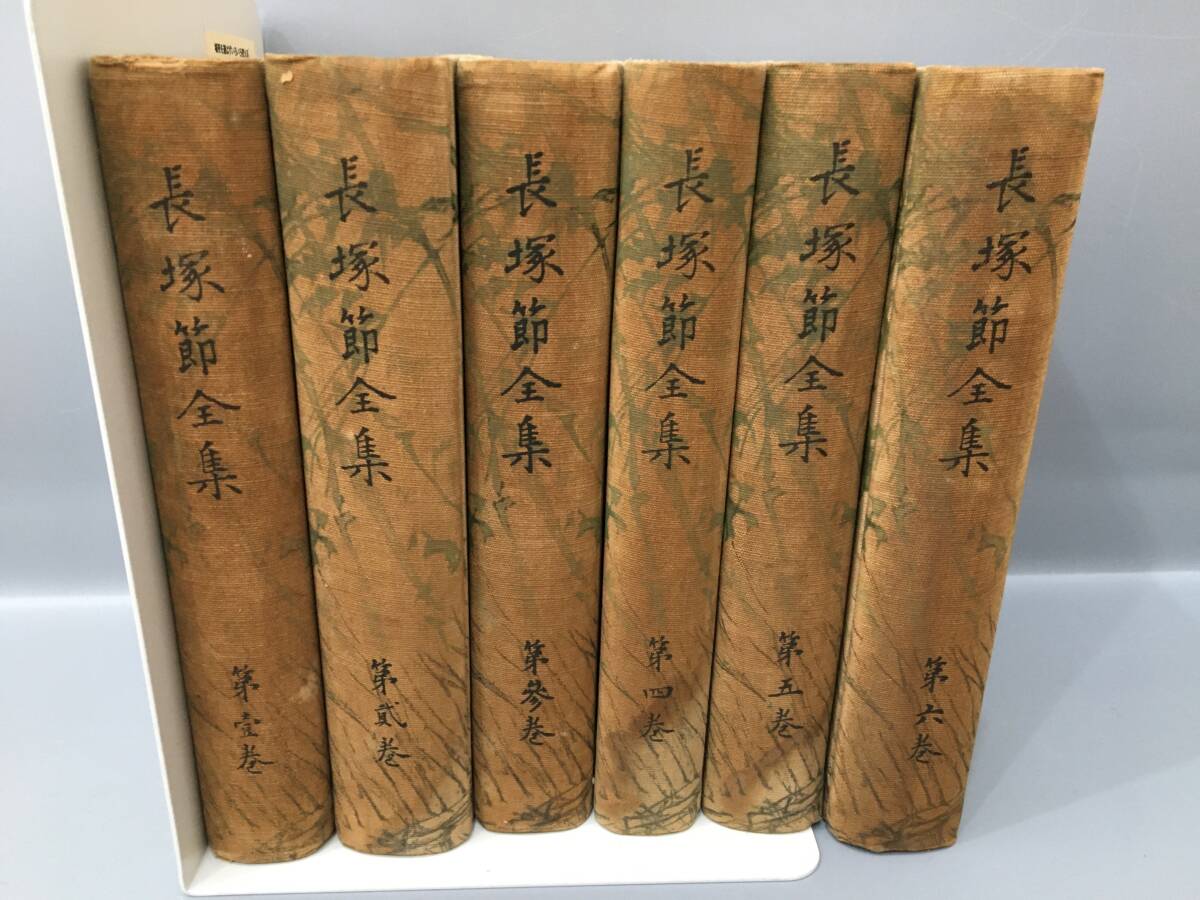 長塚節全集
第壹巻
長塚節全集
第貳巻
長塚節全集
第參巻
長塚節全集
第四巻
長塚節全集
第五巻
長塚節全集
第六巻